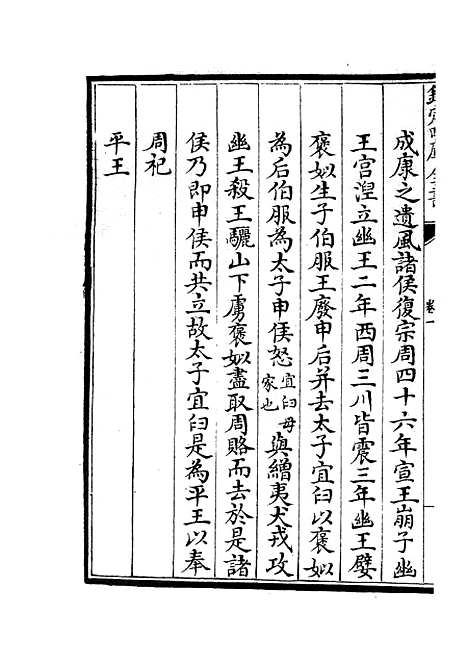 欽定四庫全書
卷一
成康之遺風諸侯復宗周四十六年宣王崩子幽
王宫湼立幽王二年西周三川皆震三年幽王嬖
褒姒生子伯服王廢申后并去太子宜臼以褒姒
為后伯服為太子申侯怒宜臼母家也與繒夷犬戎攻
幽王殺王驪山下虜褒姒盡取周賂而去於是諸
侯乃即申侯而共立故太子宜臼是為平王以奉
周祀
平王